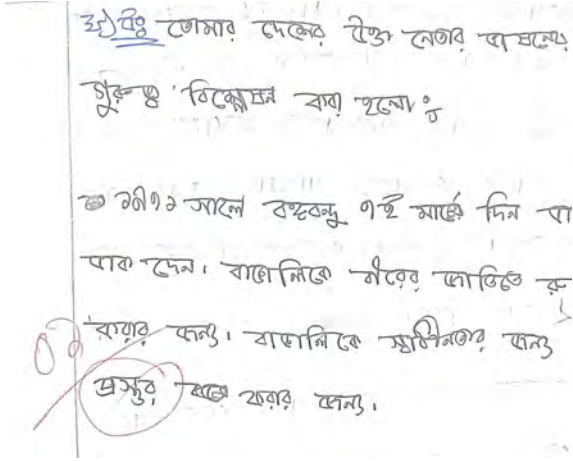 তোমার দেশের উক্ত নেতার ভাষনের
গুরুত্ব বিশ্লেষন করা হলো ঃ
১৯৭১ সালে বঙ্গবন্ধু ৭ই মার্চের দিন
ডাক দেন। বাঙালিকে বীরের জাতিতে
করার জন্য। বাঙালিকে স্বাধীনতার জন্য
প্রস্তুব করার জন্য।